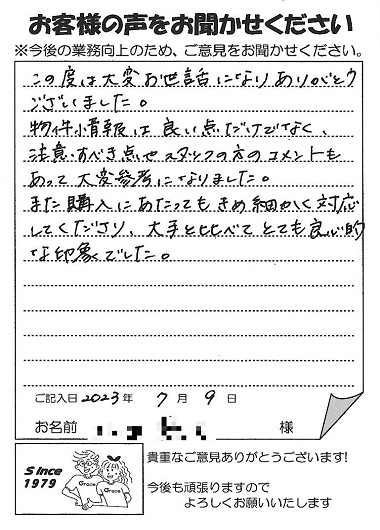 お客様の声をお聞かせください
※今後の業務向上のため、ご意見をお聞かせください。
この度は大変お世話になりありがとう
ございました。
物件情報は良い点だけでなく、
注意すべき点やスタッフの方のコメントも
あって大変参考になりました。
また購入にあたってもきめ細かく対応
してくださり、大手と比べてとても良心的
な印象でした。
ご記入日 2023年 7月 9日
お名前 様
Since
1979
Grace
Grace
貴重なご意見ありがとうございます!
今後も頑張りますので
よろしくお願いいたします